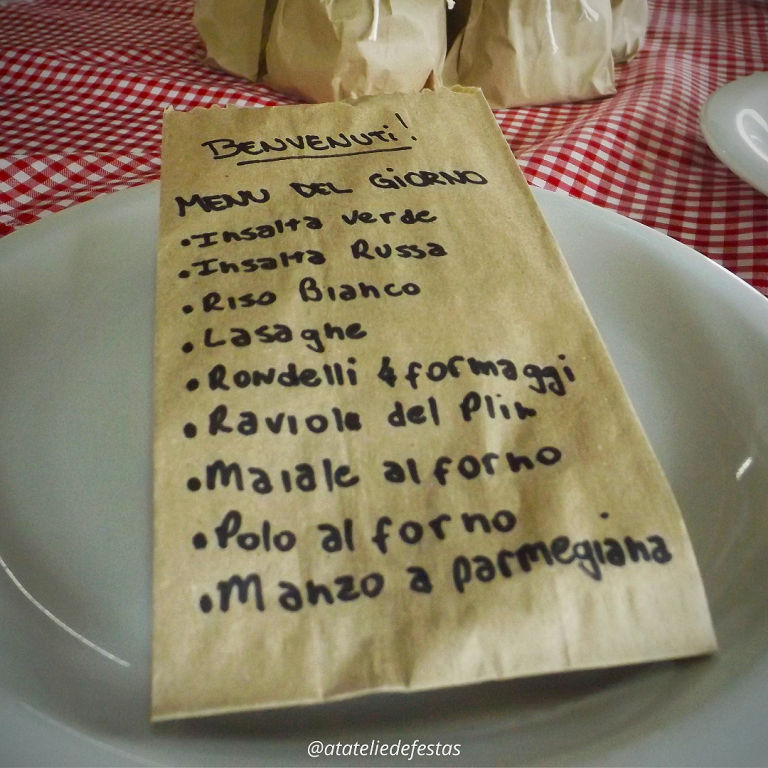 BENVENUTI!
MENU DEL GIORNO
•Insalta verde
•Insalta Russa
•Riso Bianco
•Lasaghe
•Rondelli 4 formaggi
•Raviole del Plin
•Maiale al forno
•Polo al forno
•Manzo a parmegiana
@atateliedefestas